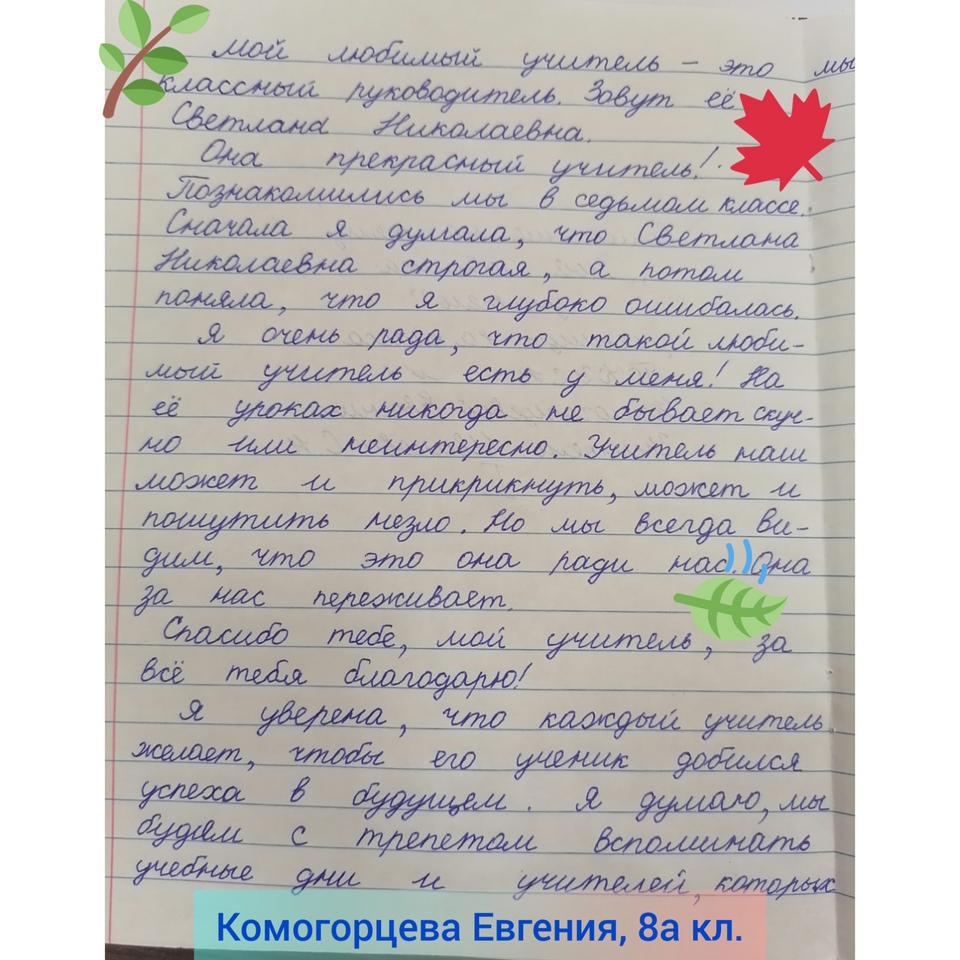 Мой любимый учитель – это мы
классный руководитель. Зовут её
Светлана Николаевна.
Она прекрасный учитель!
Познакомились мы в седьмом классе.
Сначала я думала, что Светлана
Николаевна строгая, а потом
поняла, что я глубоко ошибалась.
Я очень рада, что такой люби-
мый учитель есть у меня! На
её уроках никогда не бывает скуч-
но или неинтересно. Учитель наш
может и прикрикнуть, может и
пошутить незло. Но мы всегда ви-
дим, что это она ради нас. Она
за нас переживает.
Спасибо тебе, мой учитель, за
всё тебя благодарю!
Я уверена, что каждый учитель
желает, чтобы его ученик добился
успеха в будущем. Я думаю, мы
будем с трепетом вспоминать
учебные дни и учителей, которых
Комогорцева Евгения, 8а кл.